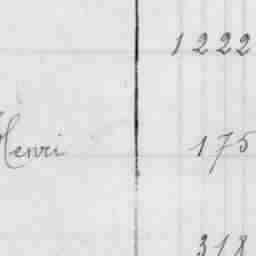 1222
Henri 175
318